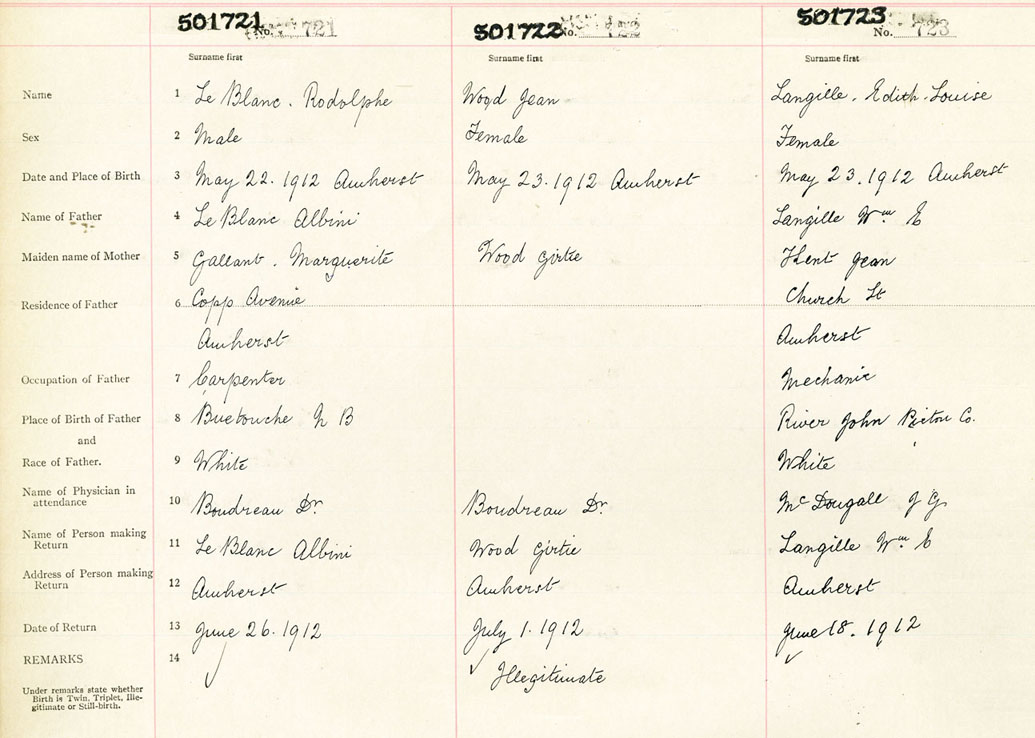 501721 No. 721 501722 No. 722 501723 No. 723
Surname first Surname first Surname first
Name 1 Le Blanc. Rodolphe Wood Jean Langille. Edith Louise
Sex 2 Male Female Female
Date and Place of Birth 3 May 22. 1912 Amherst May 23. 1912 Amherst May 23. 1912 Amherst
Name of Father 4 Le Blanc Albini Langille Wm E
Maiden name of Mother 5 Gallant. Marguerite Wood Girtie Jean
Residence of Father 6 Copp Avenue Church St
Amherst Amherst
Occupation of Father 7 Carpenter Mechanic
Place of Birth of Father 8 Buctouche N B River John Pictou Co.
and
Race of Father. 9 White White
Name of Physician in
attendance 10 Boudreau Dr. Boudreau Dr. McDougall J G
Name of Person making
Return 11 Le Blanc Albini Wood Girtie Langille Wm E
Address of Person making
Return 12 Amherst Amherst Amherst
Date of Return 13 June 26. 1912 July 1. 1912 June 18. 1912
REMARKS 14 ✓ ✓ Illegitimate ✓
Under remarks state whether
Birth is Twin, Triplet, Ille-
gitimate or Still-birth.